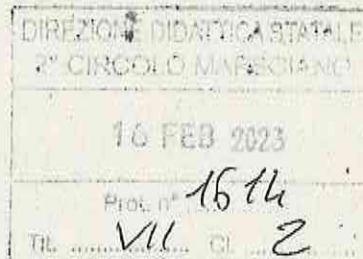 DIREZIONE DIDATTICA STATALE
2° CIRCOLO MARSCIANO
16 FEB 2023
Prot. n° 1614
Tit. VII Cl. 2